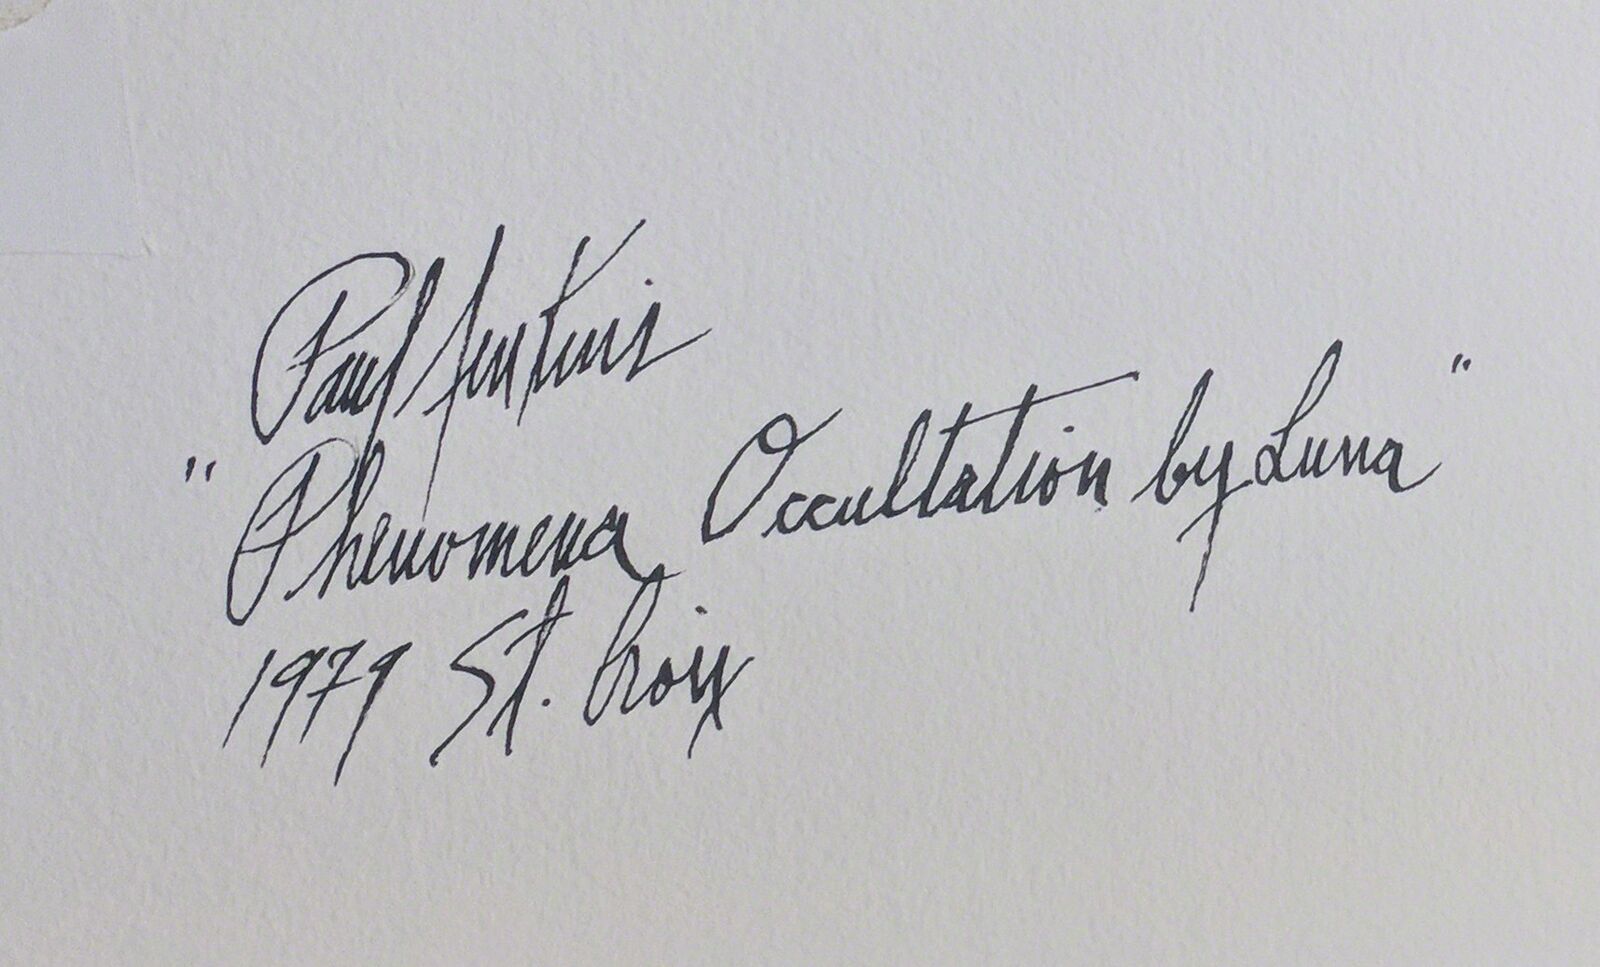 Paul Jenkins
"Phenomena Occultation by Luna"
1979 St. Croix